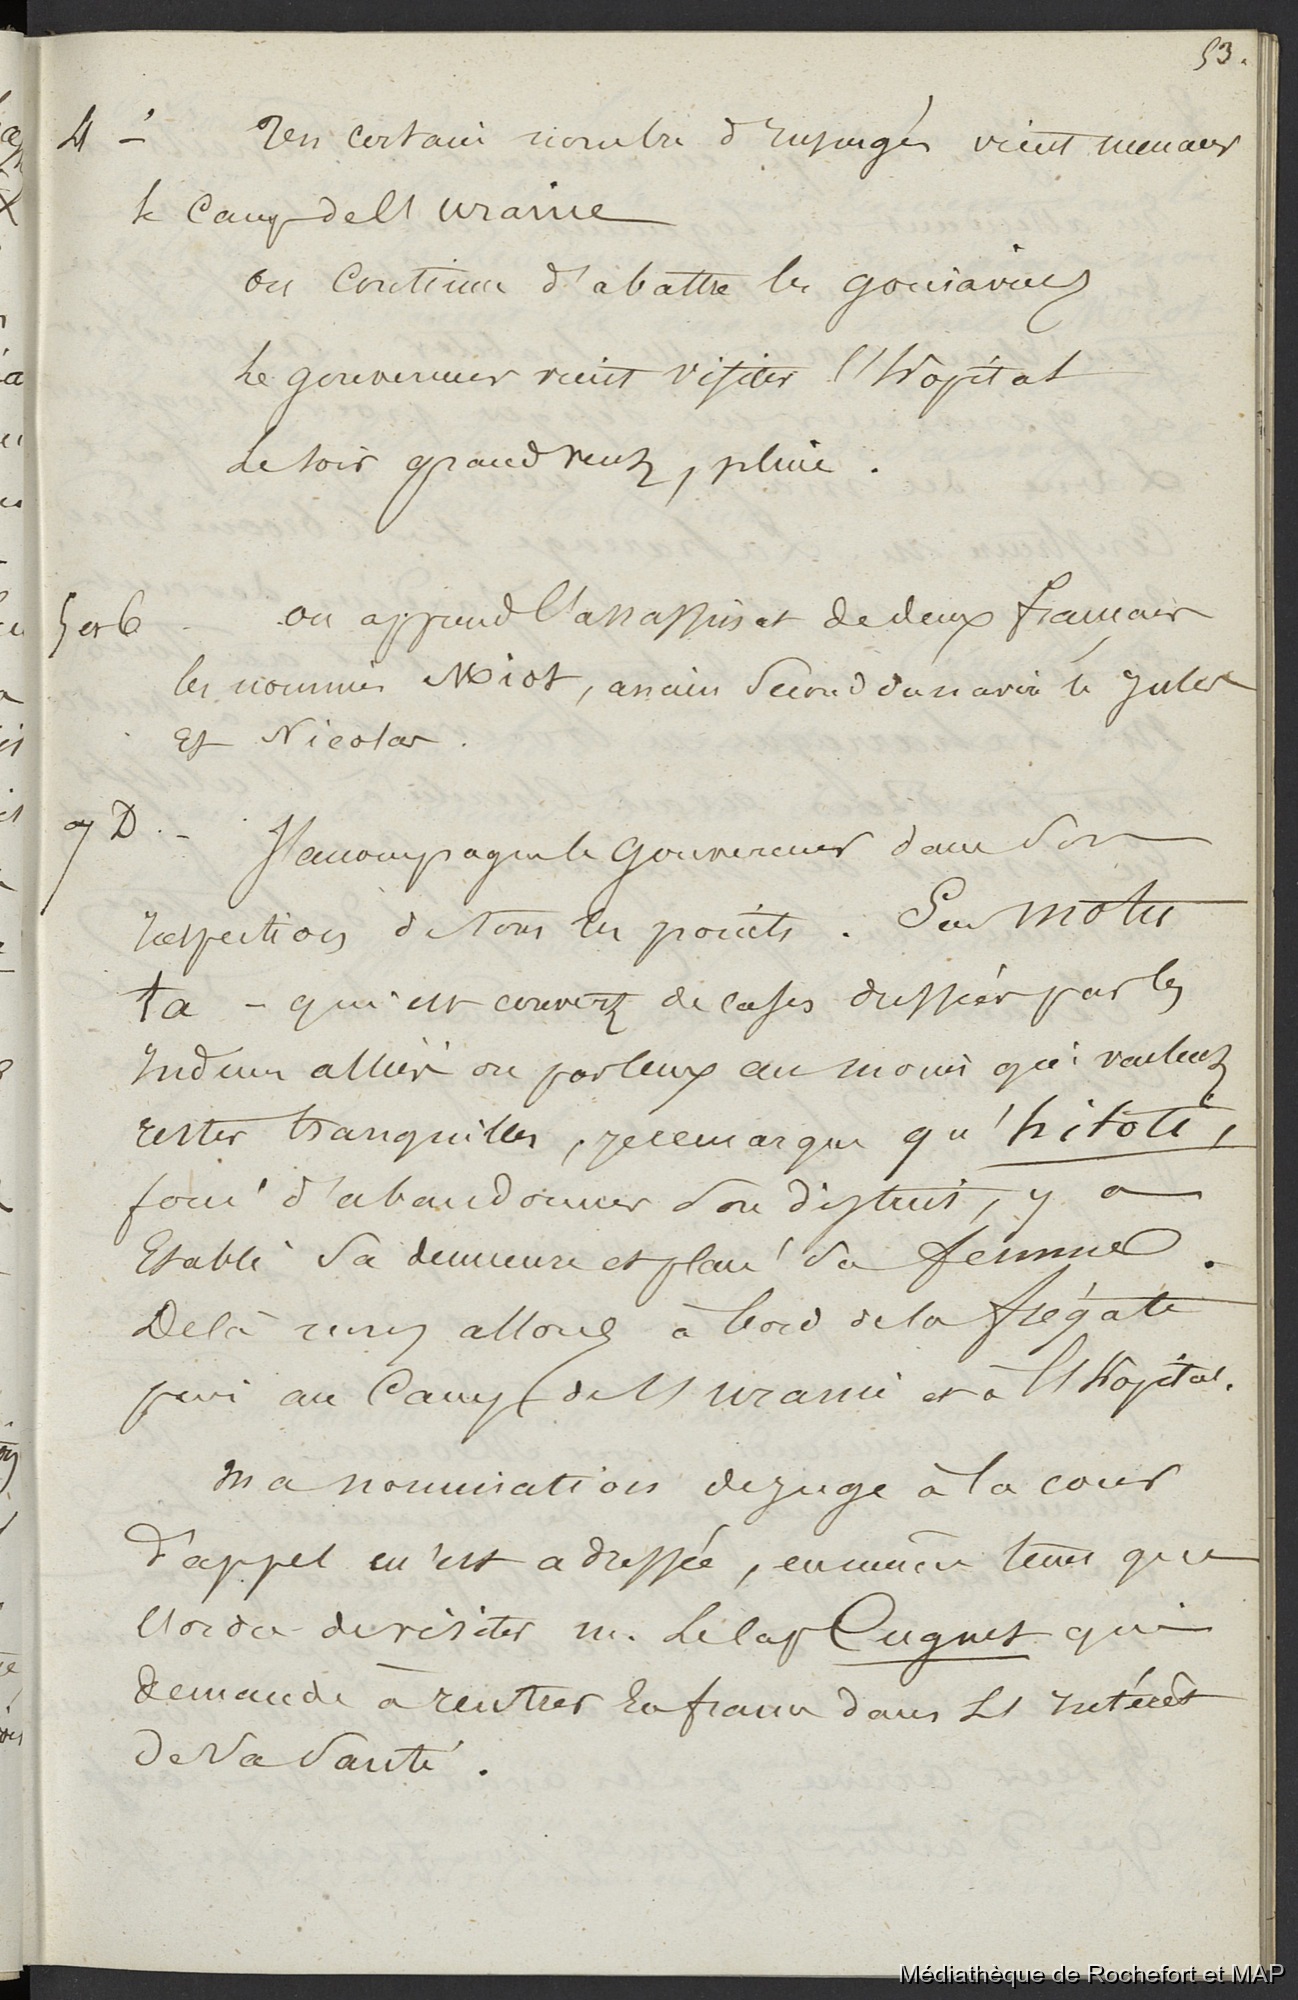 53.
4 - Un certain nombre d'insurgés vient menacer
le Camp de l'Uranie
on continue d'abattre les goyaviers
Le gouverneur vient visiter l'hopital
Le soir grand vent, pluie.
5 et 6 - on apprend l'assassinat de deux français
les nommés Miot, ancien second du navire le Jules
et Nicolas.
7 D. - J'accompagne le gouverneur dans son
inspection de tous les points. Sur Motu
ta - qui est couvert de cases dressées par les
Indiens alliés ou par ceux au moins qui veulent
rester tranquilles, je remarque qu'hitoti,
forcé d'abandonner son district, y a
Etabli sa demeure et placé sa femme.
De là nous allons à bord de la frégate
puis au Camp de l'Uranie et à l'hopital.
Ma nomination de juge à la cour
d'appel m'est adressée, en même tems que
l'ordre de visiter M. Le Cap Cugnet qui
demande à rentrer En france dans L'intérêt
de sa santé.
Médiathèque de Rochefort et MAP